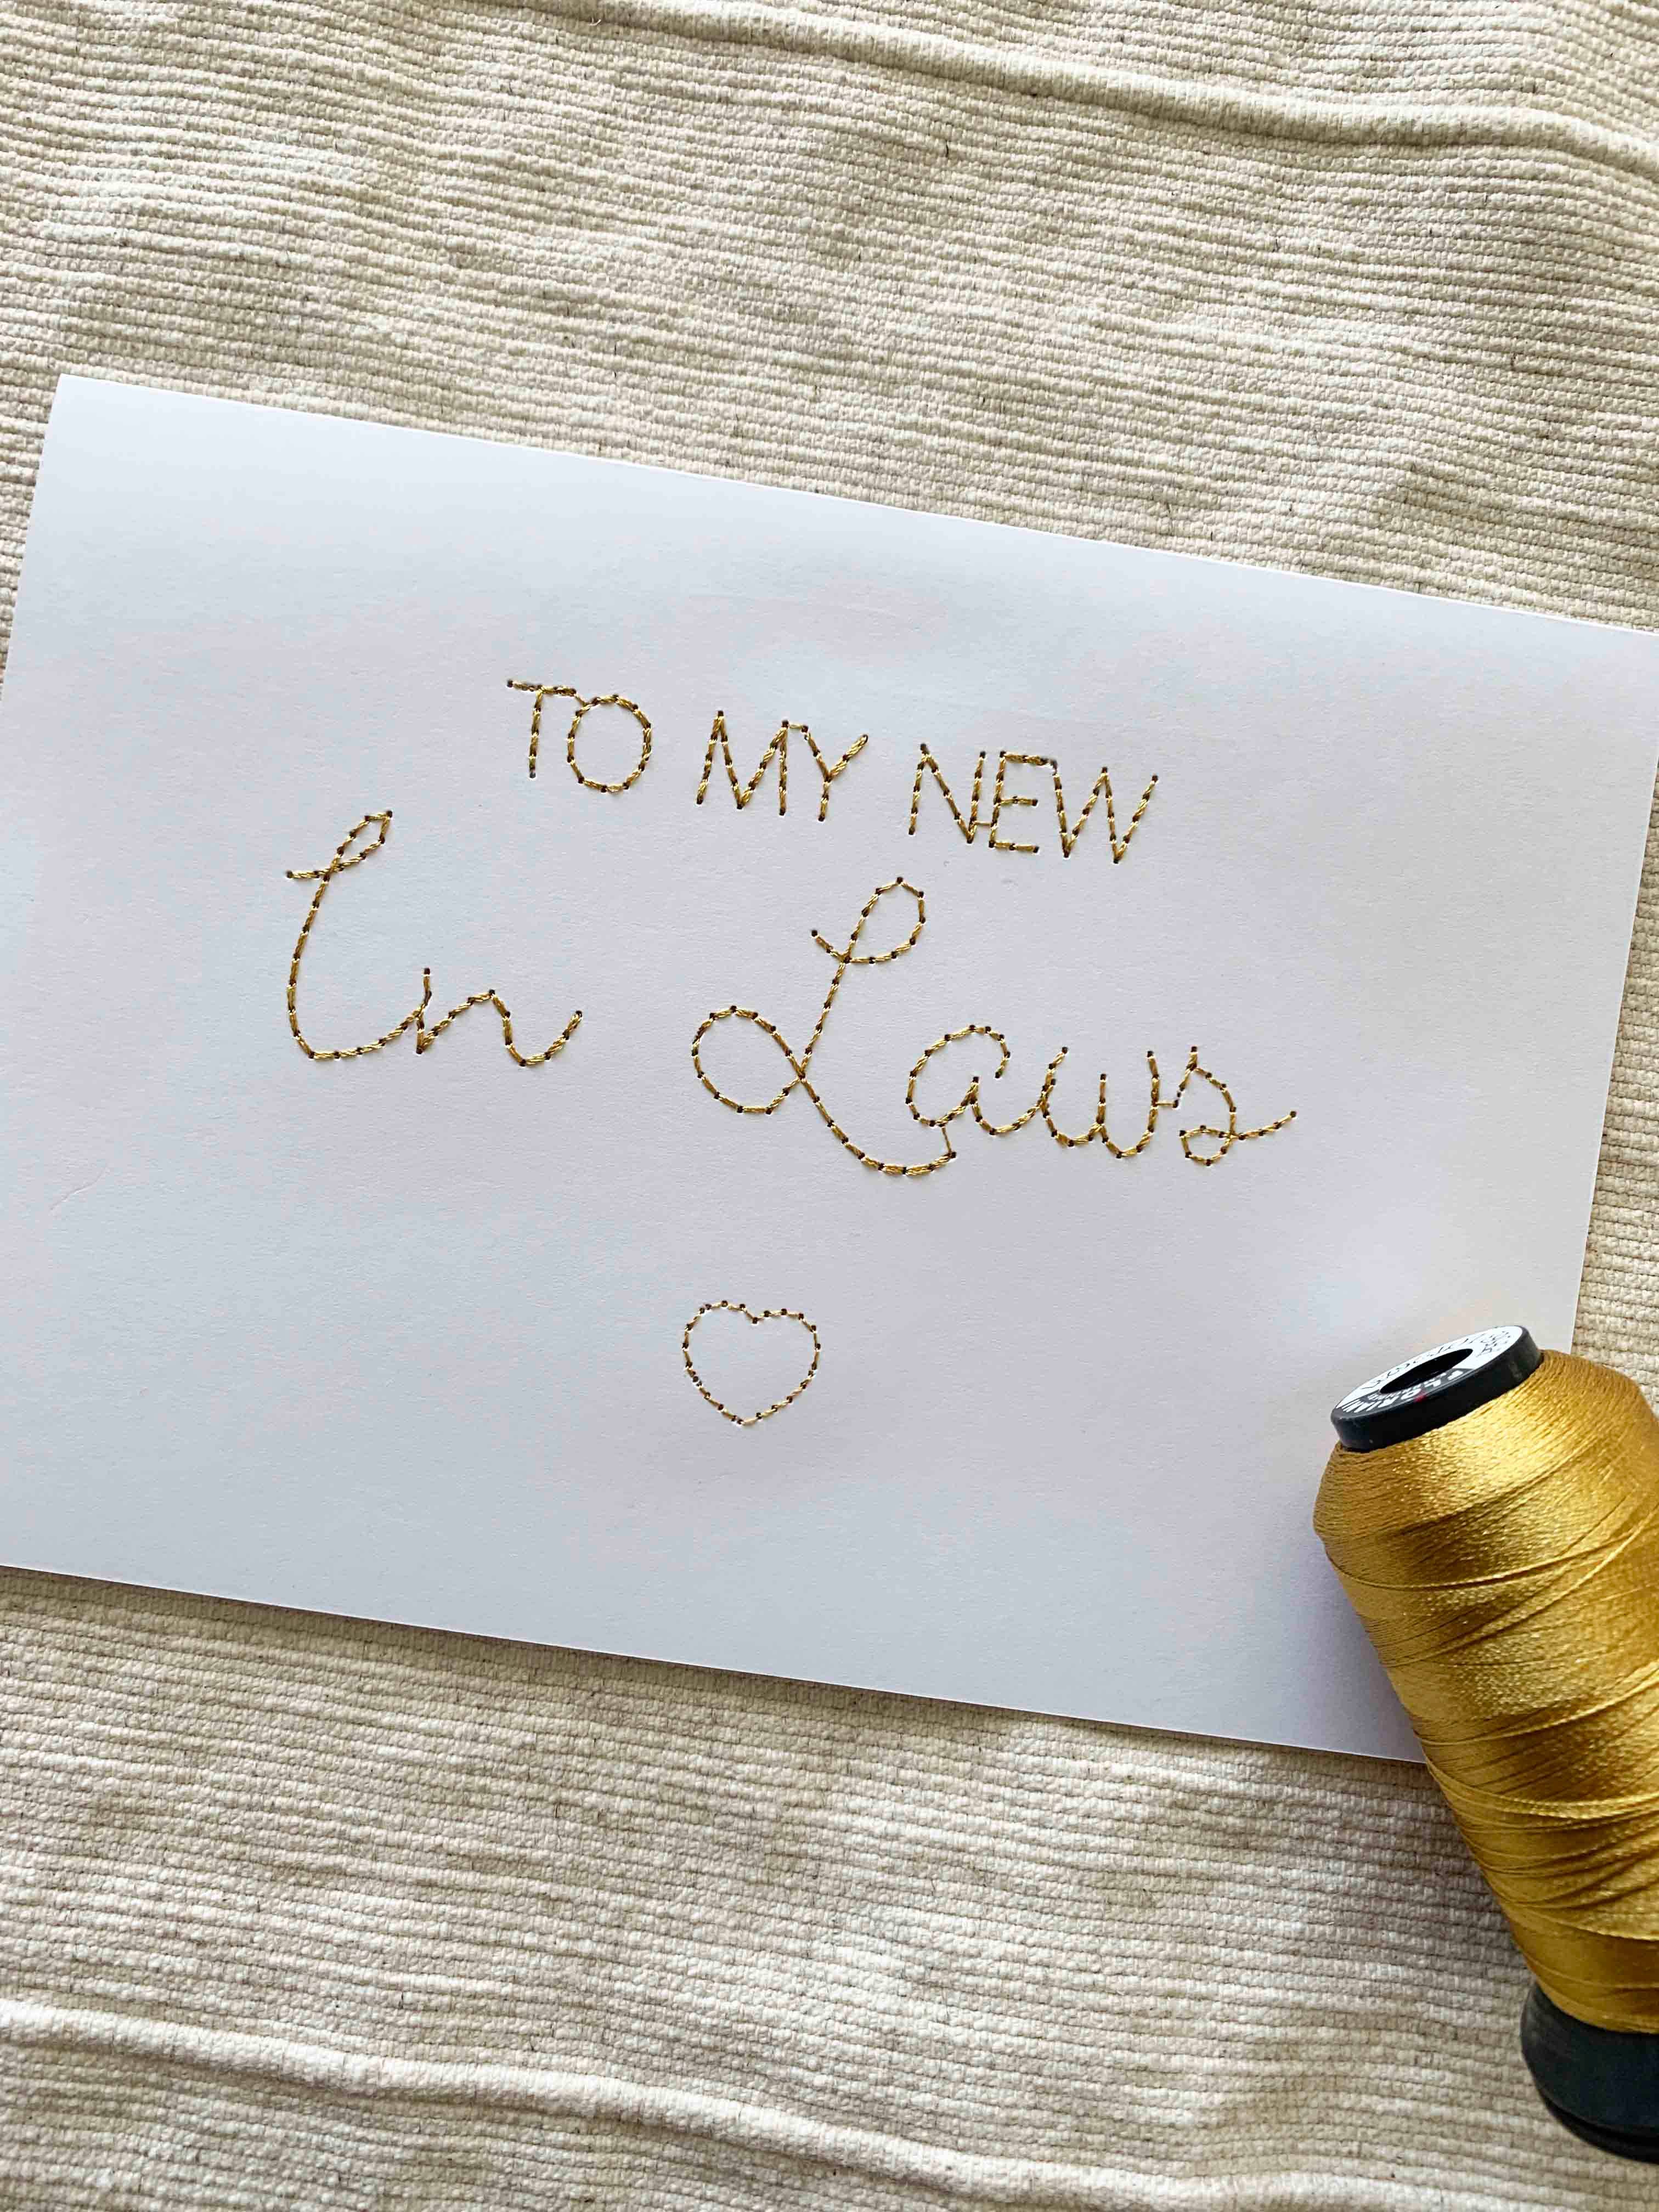 TO MY NEW
In Laws